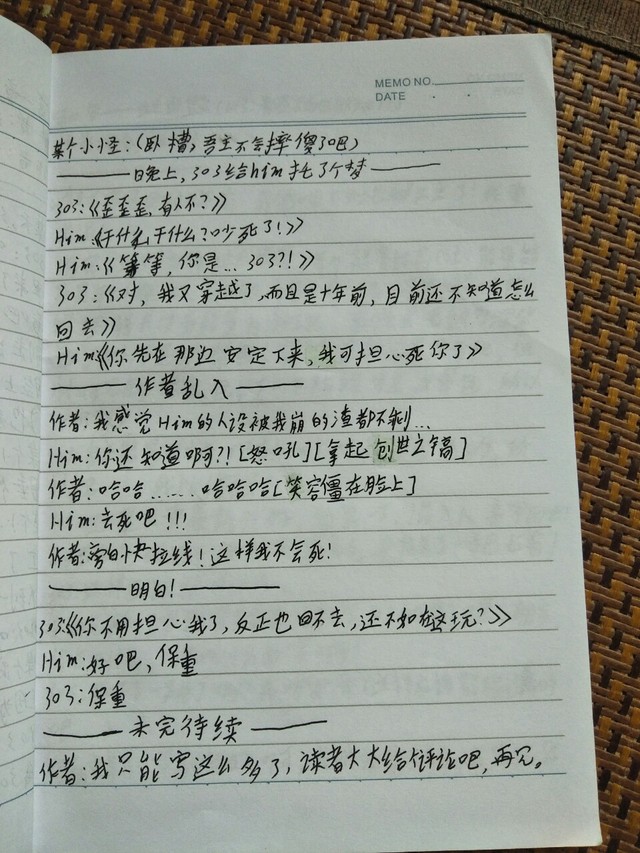 MEMO NO.
DATE . .
某个小怪:(卧槽,吾主不会摔傻了吧)
——晚上,303给him托了个梦——
303:《歪歪歪,有人不?》
Him:《干什么,干什么?吵死了!》
Him:《等等,你是...303?!》
303:《对,我又穿越了,而且是十年前,目前还不知道怎么
回去》
Him《你先在那边安定下来,我可担心死你了》
——作者乱入——
作者:我感觉Him的人设被我崩的渣都不剩...
Him:你还知道啊?![怒吼][拿起创世之镐]
作者:哈哈......哈哈哈[笑容僵在脸上]
Him:去死吧!!!
作者:旁白快拉线!这样我不会死!
——明白!——
303:《你不用担心我了,反正也回不去,还不如在这玩?》
Him:好吧,保重
303:保重
——未完待续——
作者:我只能写这么多了,读者大大给个评论吧,再见。